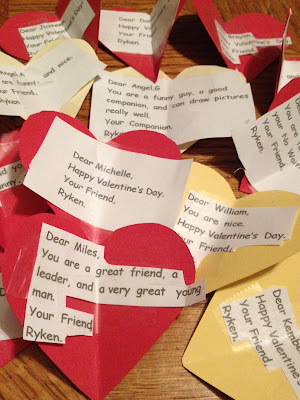 Dear
Happy Valent
Your Fri
Ryken.
Dear
Happy
Your Friend,
Ryken.
Valentine's Day.
Your Friend,
Ryken.
Angel.A
and nice.
are funny
Your Friend,
Ryken
Dear Angel.G
You are a funny guy, a good
companion, and can draw pictures
really well.
Your Companion.
Ryken
You are
Your No
Your Friend.
Ryken.
Dear Michelle,
Happy Valentine's Day.
Your Friend,
Ryken.
Dear William,
You are nice.
Happy Valentine's Day.
Your Friend,
Dear Miles,
You are a great friend, a
leader, and a very great young
man.
Your Friend
Ryken.
Dear
Happy Valentine
Your Friend,
Ryken.